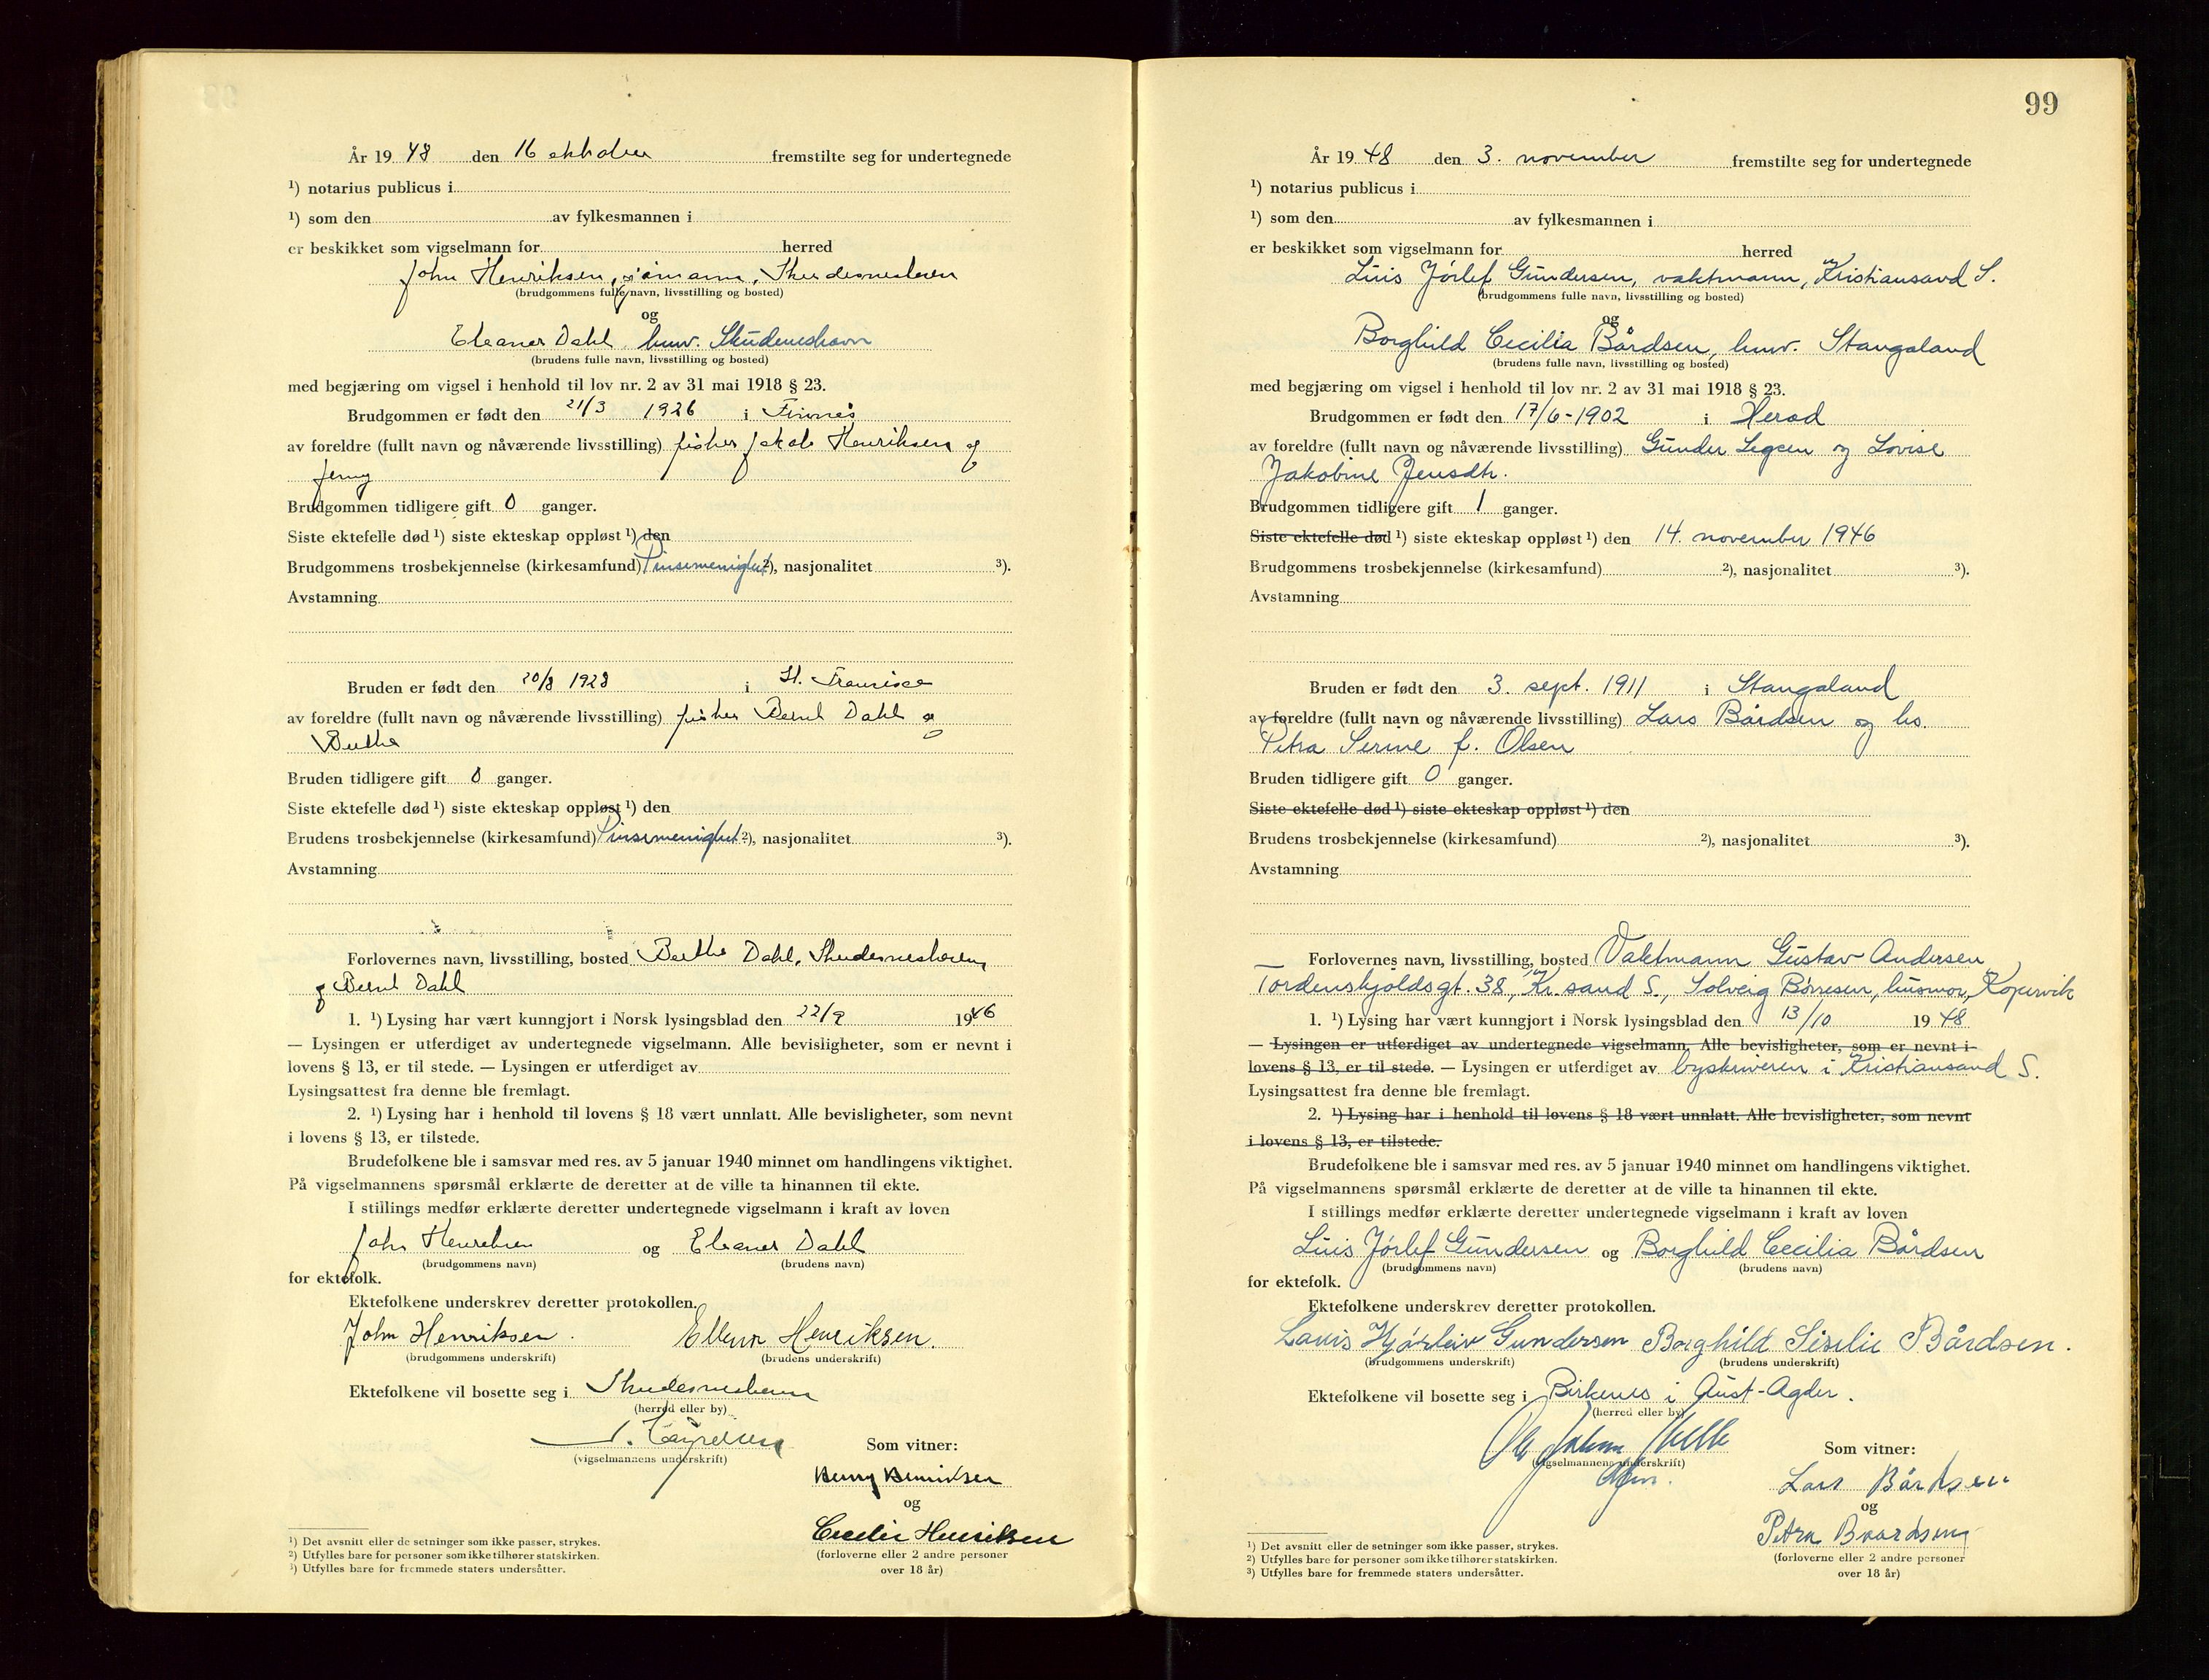 År 19 48 den 16 oktober fremstilte seg for undertegnede
¹) notarius publicus i
¹) som den av fylkesmannen i
er beskikket som vigselmann for herred
John Henriksen, sjømann, Skudesneshavn
(brudgommens fulle navn, livsstilling og bosted)
og
Eleanor Dahl husv. Skudeneshavn
(brudens fulle navn, livsstilling og bosted)
med begjæring om vigsel i henhold til lov nr. 2 av 31 mai 1918 § 23.
Brudgommen er født den 21/3 1926 i Finnes
av foreldre (fullt navn og nåværende livsstilling) fisker Jakob Henriksen og
Jenny
Brudgommen tidligere gift 0 ganger.
Siste ektefelle død ¹) siste ekteskap oppløst ¹) den
Brudgommens trosbekjennelse (kirkesamfund) Pinsemenighet ²), nasjonalitet ³).
Avstamning
Bruden er født den 20/8 1928 i St. Francisco
av foreldre (fullt navn og nåværende livsstilling) fisker Bernt Dahl og
Berthe
Bruden tidligere gift 0 ganger.
Siste ektefelle død ¹) siste ekteskap oppløst ¹) den
Brudens trosbekjennelse (kirkesamfund) Pinsemenighet ²), nasjonalitet ³).
Avstamning
Forlovernes navn, livsstilling, bosted Berthe Dahl, Skudesneshavn,
og Bernt Dahl
1. ¹) Lysing har vært kunngjort i Norsk lysingsblad den 22/9 1946
— Lysingen er utferdiget av undertegnede vigselmann. Alle bevisligheter, som er nevnt i
lovens § 13, er til stede. — Lysingen er utferdiget av
Lysingsattest fra denne ble fremlagt.
2. ¹) Lysing har i henhold til lovens § 18 vært unnlatt. Alle bevisligheter, som nevnt
i lovens § 13, er tilstede.
Brudefolkene ble i samsvar med res. av 5 januar 1940 minnet om handlingens viktighet.
På vigselmannens spørsmål erklærte de deretter at de ville ta hinannen til ekte.
I stillings medfør erklærte deretter undertegnede vigselmann i kraft av loven
John Henriksen og Eleanor Dahl
(brudgommens navn) (brudens navn)
for ektefolk.
Ektefolkene underskrev deretter protokollen.
John Henriksen. Ellenor Henriksen.
(brudgommens underskrift) (brudens underskrift)
Ektefolkene vil bosette seg i Skudesneshavn
(herred eller by)
(vigselmannens underskrift)
Som vitner:
Henry Henriksen
og
Cecelie Henriksen
(forloverne eller 2 andre personer
over 18 år)
¹) Det avsnitt eller de setninger som ikke passer, strykes.
²) Utfylles bare for personer som ikke tilhører statskirken.
³) Utfylles bare for fremmede staters undersåtter.
99
År 19 48 den 3. november fremstilte seg for undertegnede
¹) notarius publicus i
¹) som den av fylkesmannen i
er beskikket som vigselmann for herred
Luis Jórlef Gundersen, vaktmann, Kristiansand S.
(brudgommens fulle navn, livsstilling og bosted)
og
Borghild Cecilia Bårdsen, husv. Stangaland
(brudens fulle navn, livsstilling og bosted)
med begjæring om vigsel i henhold til lov nr. 2 av 31 mai 1918 § 23.
Brudgommen er født den 17/6-1902 i Herad
av foreldre (fullt navn og nåværende livsstilling) Gunder Segeen og Lovise
Jakobine Jensdtr.
Brudgommen tidligere gift 1 ganger.
Siste ektefelle død ¹) siste ekteskap oppløst ¹) den 14. november 1946
Brudgommens trosbekjennelse (kirkesamfund) ²), nasjonalitet ³).
Avstamning
Bruden er født den 3. sept. 1911 i Stangaland
av foreldre (fullt navn og nåværende livsstilling) Lars Bårdsen og hs.
Petra Serine f. Olsen
Bruden tidligere gift 0 ganger.
Siste ektefelle død ¹) siste ekteskap oppløst ¹) den
Brudens trosbekjennelse (kirkesamfund) ²), nasjonalitet ³).
Avstamning
Forlovernes navn, livsstilling, bosted Vaktmann Gustav Andersen,
Tordenskjoldsgt. 38, Kr.sand S., Solveig Børresen, husmor, Kopervik
1. ¹) Lysing har vært kunngjort i Norsk lysingsblad den 13/10 19 48
— Lysingen er utferdiget av undertegnede vigselmann, Alle bevisligheter, som er nevnt i
lovens § 13, er til stede. — Lysingen er utferdiget av byskriveren i Kristiansand S.
Lysingsattest fra denne ble fremlagt.
2. ¹) Lysing har i henhold til lovens § 18 vært unnlatt. Alle bevisligheter, som nevnt
i lovens § 13, er tilstede.
Brudefolkene ble i samsvar med res. av 5 januar 1940 minnet om handlingens viktighet.
På vigselmannens spørsmål erklærte de deretter at de ville ta hinannen til ekte.
I stillings medfør erklærte deretter undertegnede vigselmann i kraft av loven
Luis Jórlef Gundersen og Borghild Cecilia Bårdsen
(brudgommens navn) (brudens navn)
for ektefolk.
Ektefolkene underskrev deretter protokollen.
Lauis Hjørleiv Gundersen Borghild Siselie Bårdsen.
(brudgommens underskrift) (brudens underskrift)
Ektefolkene vil bosette seg i Birkenes i Aust-Agder.
(herred eller by)
(vigselmannens underskrift)
Som vitner:
Lars Bårdsen
og
Petra Baardsen
(forloverne eller 2 andre personer
over 18 år)
¹) Det avsnitt eller de setninger som ikke passer, strykes.
²) Utfylles bare for personer som ikke tilhører statskirken.
³) Utfylles bare for fremmede staters undersåtter.